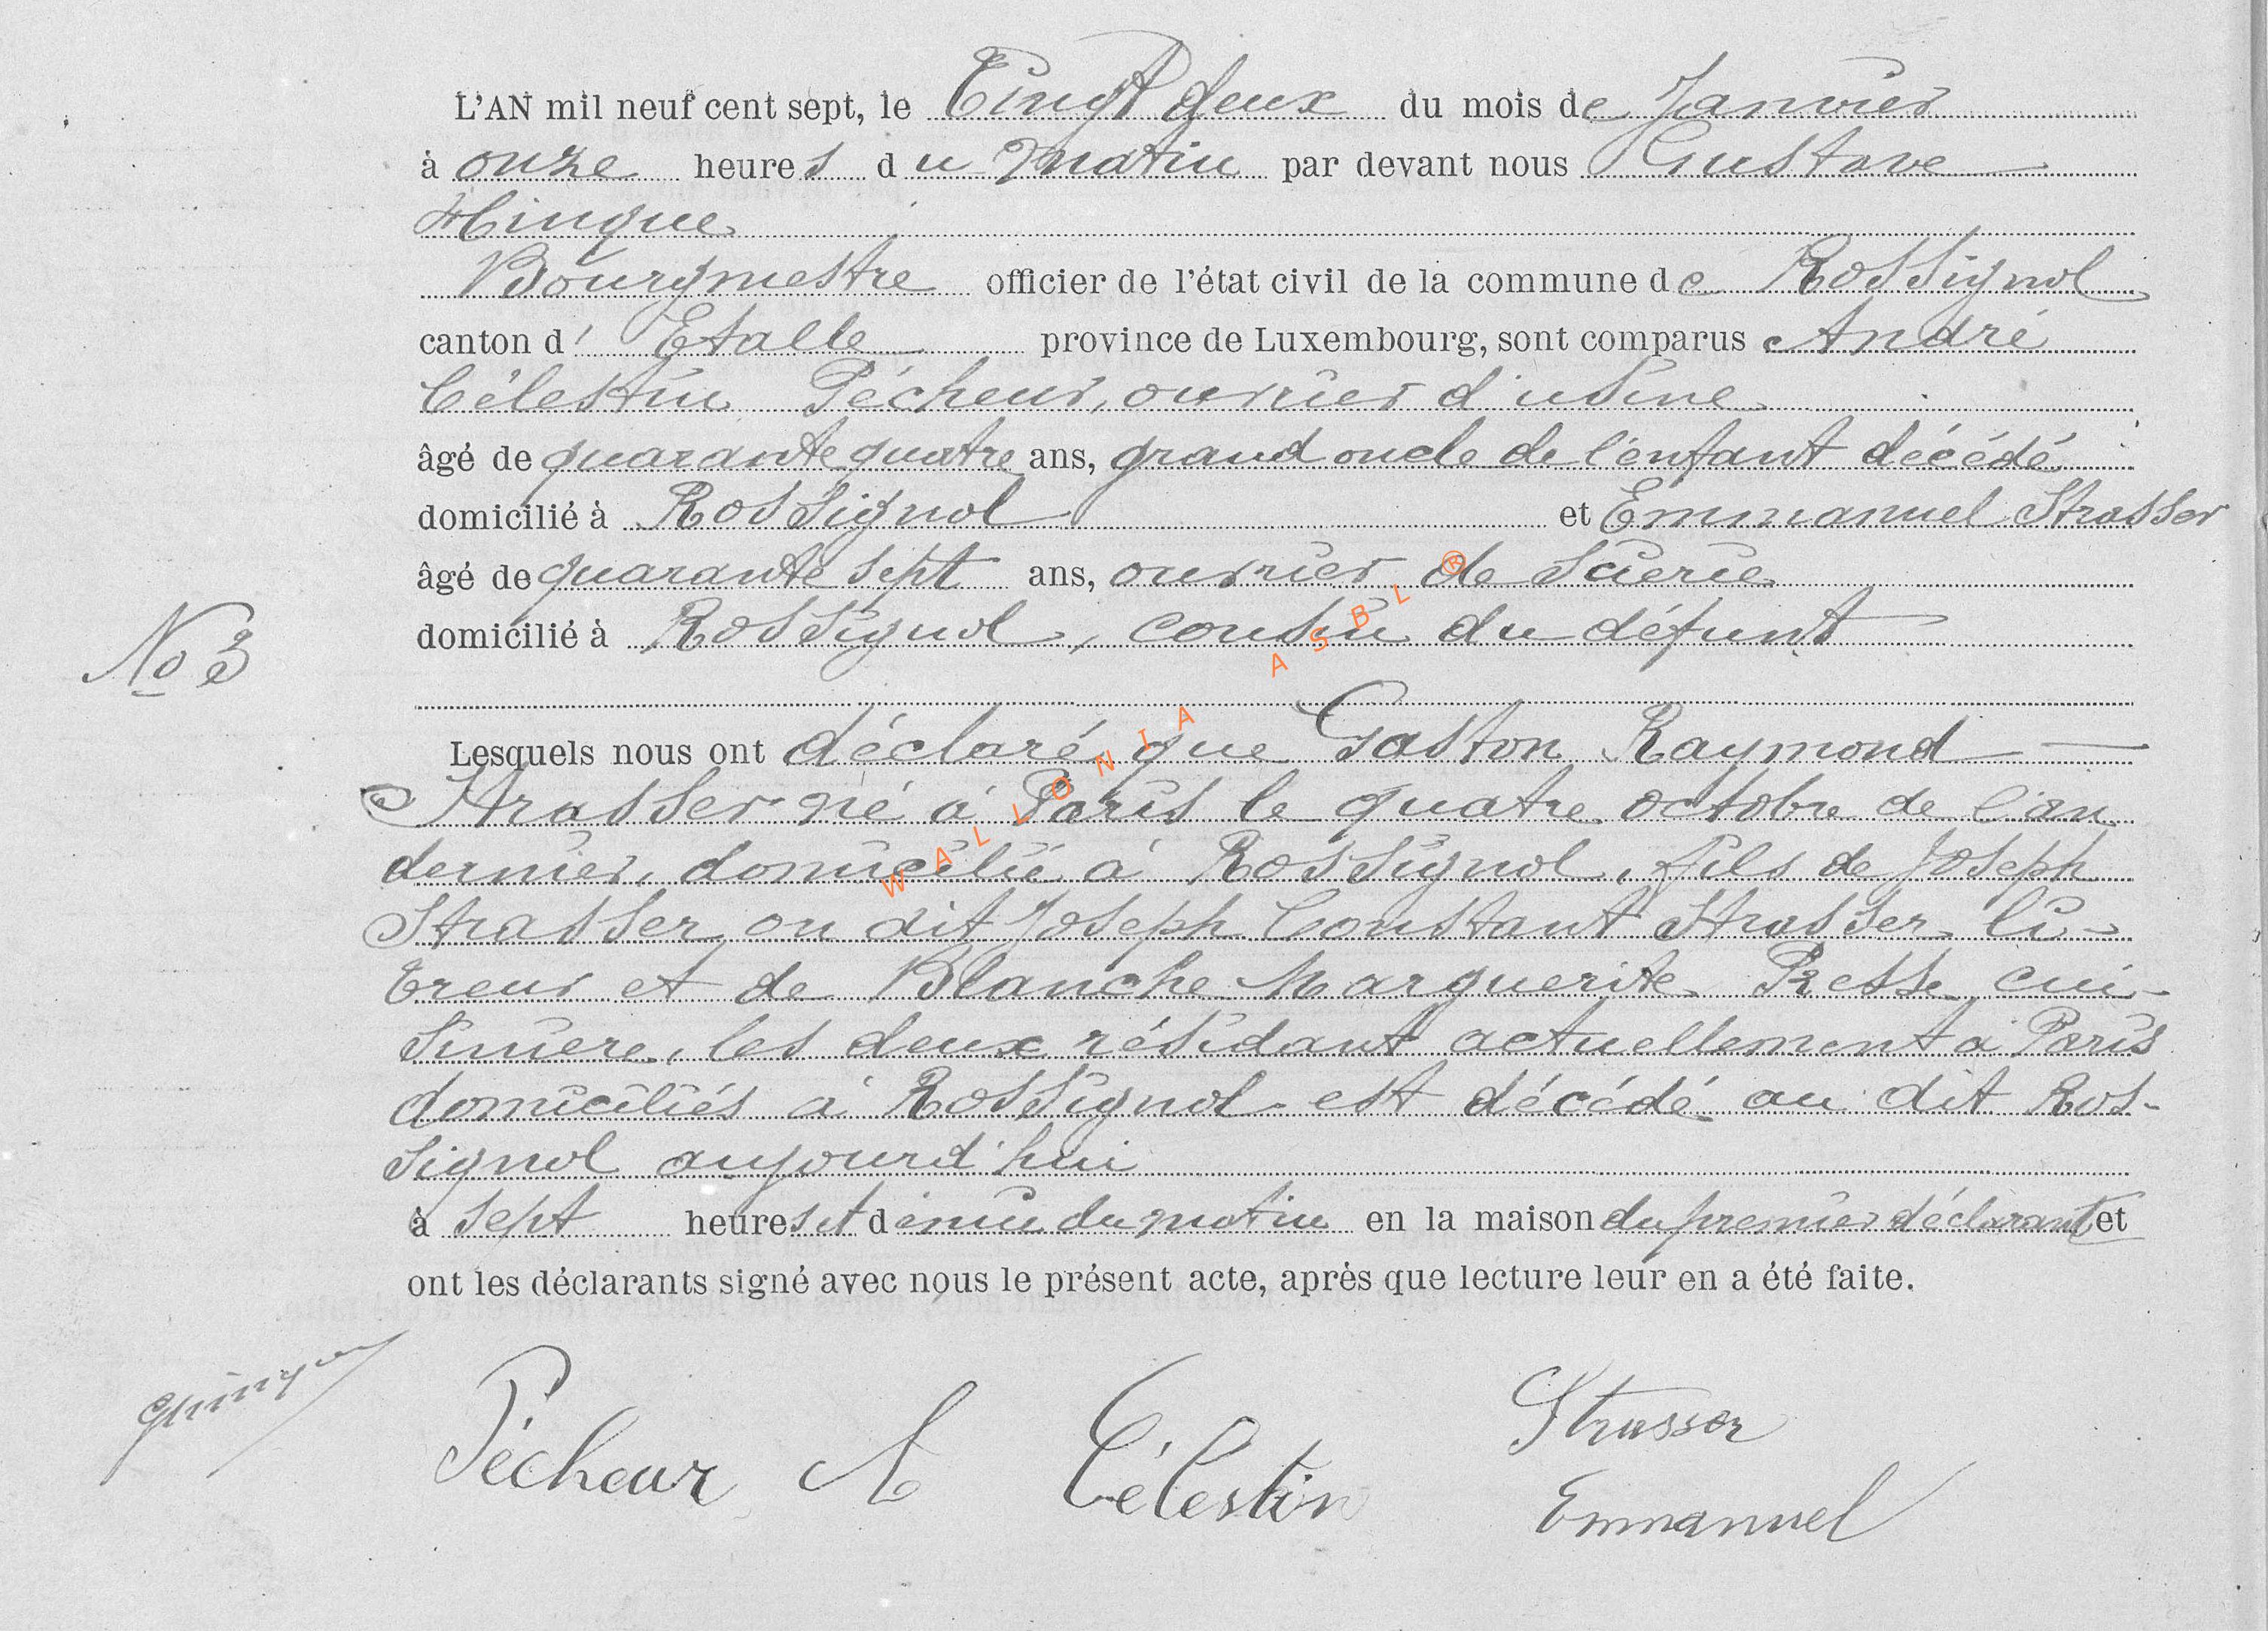 L'AN mil neuf cent sept, le Vingt deux du mois de Janvier
à onze heures du matin par devant nous Gustave
Hinque
Bourgmestre officier de l'état civil de la commune de Rossignol
canton d' Etalle province de Luxembourg, sont comparus André
Célestin Pécheur, ouvrier d'usine
âgé de quarante quatre ans, grand oncle de l'enfant décédé
domicilié à Rossignol et Emmanuel Strasser
âgé de quarante sept ans, ouvrier de scierie
No 3
domicilié à Rossignol, cousin du défunt
Lesquels nous ont déclaré que Gaston Raymond
Strasser né à Paris le quatre octobre de l'an
dernier, domicilié à Rossignol, fils de Joseph
Strasser ou dit Joseph Constant Strasser, li-
vreur et de Blanche Marguerite Resse cui-
sinière, les deux résidant actuellement à Paris
domiciliés à Rossignol est décédé au dit Ros-
signol aujourd'hui
à sept heures et demie du matin en la maison du premier déclarant et
ont les déclarants signé avec nous le présent acte, après que lecture leur en a été faite.
Pécheur A Célestin
Strasser
Emmanuel
WALLONIA ASBL ®